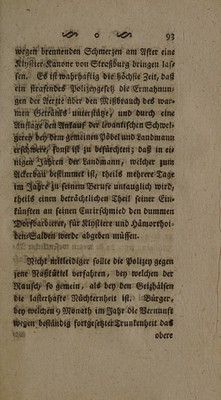 93
wegen brennenden Schmerzen am After eine
Klystier-Kanone von Strasburg bringen las-
sen. Es ist wahrhaftig die höchste Zeit, daß
ein strafendes Polizeygesetz die Ermahnun-
gen der Aerzte über den Mißbrauch des war-
men Getränks unterstütze, und durch eine
Auflage den Ankauf der levantischen Schwel-
gerey bey dem gemeinen Pöbel und Landmann
erschwere, sonst ist zu befürchten; daß in ei-
nigen Jahren der Landmann, welcher zum
Ackerbau bestimmet ist, theils mehrere Tage
im Jahre zu seinem Berufe untauglich wird,
theils einen beträchtlichen Theil seiner Ein-
künften an seinen Curirschmied den dummen
Dorfbarbierer, für Klystiere und Hämorrhoi-
den-Salben werde abgeben müssen.
Nicht mitleidiger sollte die Polizey gegen
jene Maßtüttel verfahren, bey welchen der
Rausch so gemein, als bey den Geizhälsen
die lasterhafte Nüchternheit ist. Bürger,
bey welchen 9 Monath im Jahr die Vernunft
wegen beständig fortgesetzter Trunkenheit das
obere